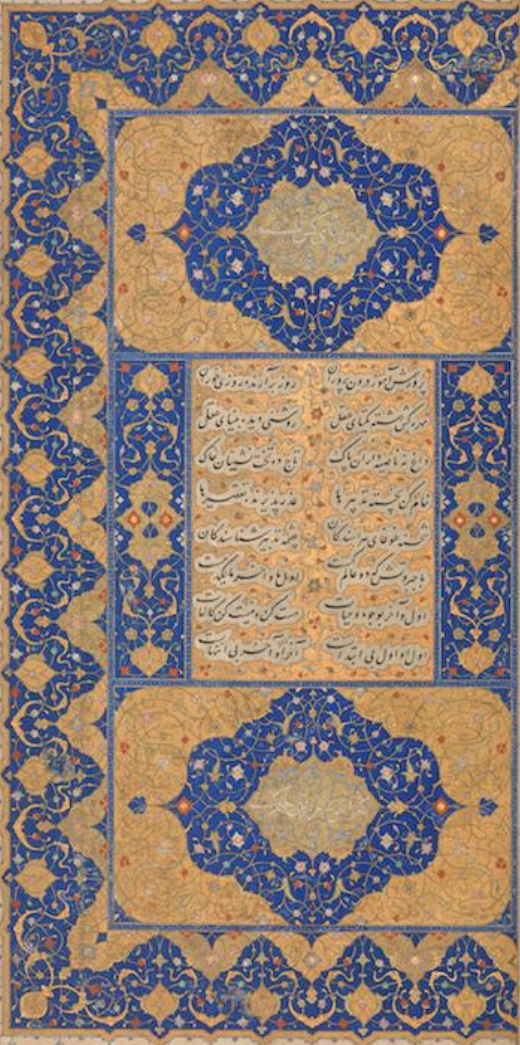 پرورش آموز درون پروران روز برآرنده روزی خوران
مهره کش رشته یکتای عقل روشنی دیده بینای عقل
داغ نه ناصیه داران پاک تاج ده تخت نشینان خاک
خام کن پخته تدبیرها عذر پذیرنده تقصیرها
شحنه غوغای هراسندگان چشمه تدبیر شناسندگان
با جبروتش که دو عالم کمست اول ما آخر ما یکدمست
اول و آخر بوجود و حیات هست کن و نیست کن کاینات
اول او اول بی ابتداست آخر او آخر بی انتهاست